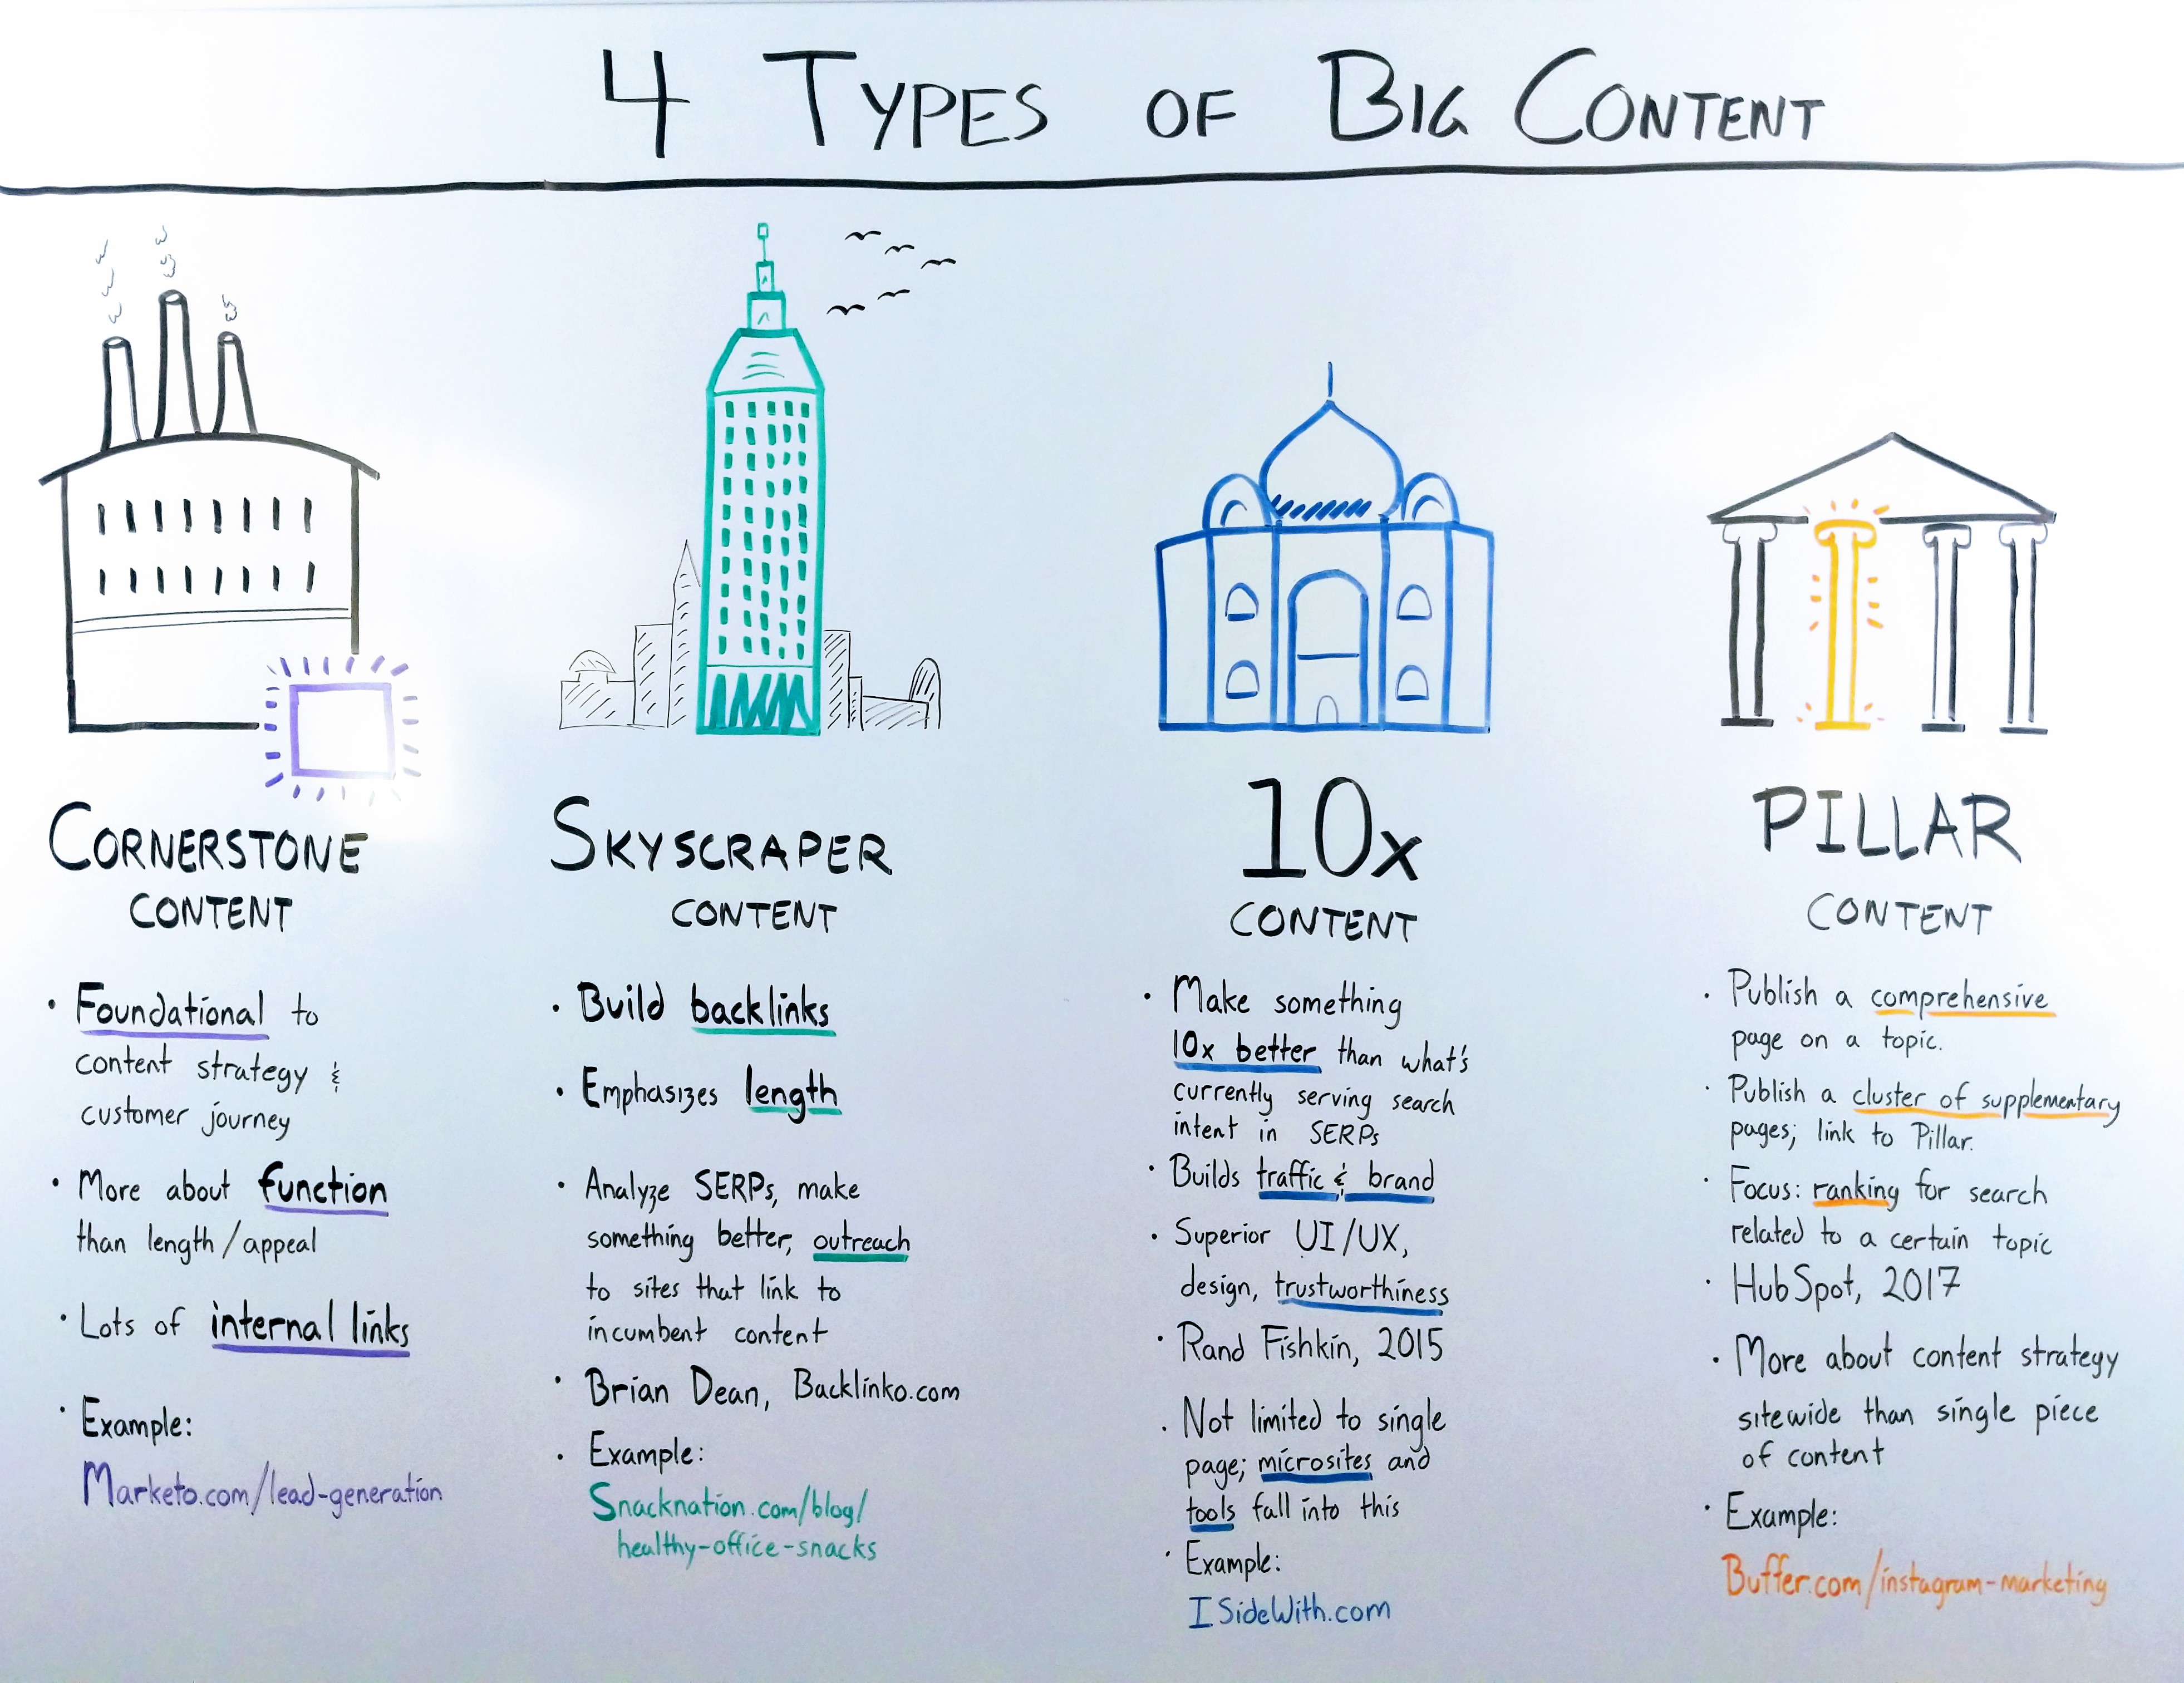 4 TYPES OF BIG CONTENT
CORNERSTONE
CONTENT
• Foundational to
content strategy &
customer journey
• More about function
than length/appeal
• Lots of internal links
• Example:
Marketo.com/lead-generation
SKYSCRAPER
CONTENT
• Build backlinks
• Emphasizes length
• Analyze SERPs, make
something better, outreach
to sites that link to
incumbent content
• Brian Dean, Backlinko.com
• Example:
Snacknation.com/blog/
healthy-office-snacks
10x
CONTENT
• Make something
10x better than what's
currently serving search
intent in SERPs
• Builds traffic & brand
• Superior UI/UX,
design, trustworthiness
• Rand Fishkin, 2015
• Not limited to single
page; microsites and
tools fall into this
• Example:
ISideWith.com
PILLAR
CONTENT
• Publish a comprehensive
page on a topic.
• Publish a cluster of supplementary
pages; link to Pillar.
• Focus: ranking for search
related to a certain topic
• HubSpot, 2017
• More about content strategy
sitewide than single piece
of content
• Example:
Buffer.com/instagram-marketing